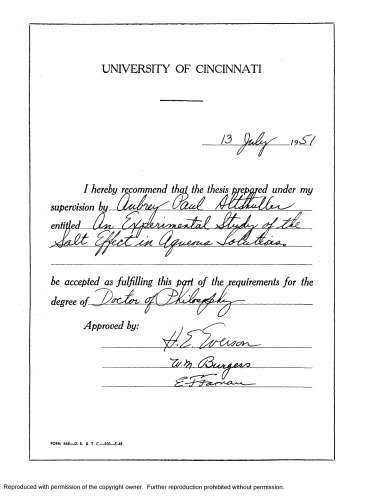 UNIVERSITY OF CINCINNATI
13 July 1951
I hereby recommend that the thesis prepared under my
supervision by Aubrey Paul Altshuller
entitled An Experimental Study of the
Salt Effect in Aqueous Solutions.
be accepted as fulfilling this part of the requirements for the
degree of Doctor of Philosophy
Approved by:
H. E. Everson
Wm Burgers
FORM 668—G. S. & T. C.—500—5-48
Reproduced with permission of the copyright owner. Further reproduction prohibited without permission.